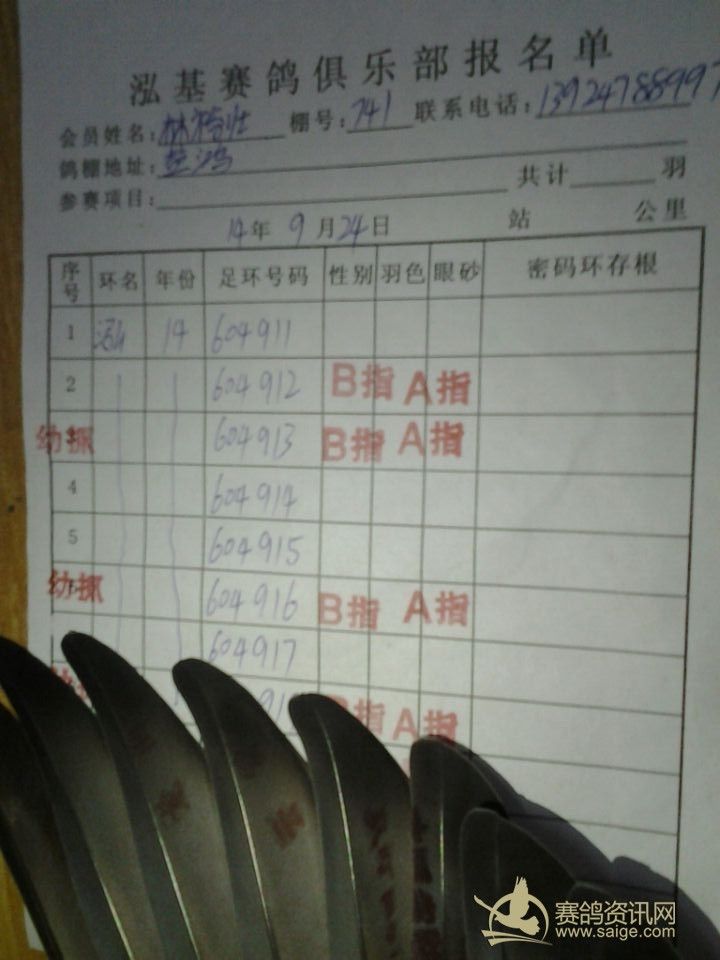 泓基赛鸽俱乐部报名单
会员姓名: 棚号:741 联系电话:13924788997
鸽棚地址:
参赛项目: 共计 羽
14年 9月24日 站 公里
序号 环名 年份 足环号码 性别 羽色 眼砂 密码环存根
1 泓 14 604911
2 604912 B指 A指
幼 604913 B指 A指
4 604914
5 604915
幼 604916 B指 A指
604917
B指 A指
赛鸽资讯网
www.saige.com